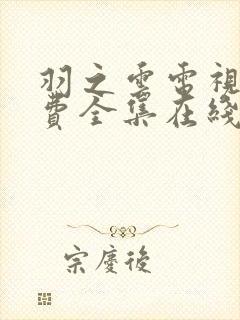 羽之云電視
費全集在綫
宗慶後